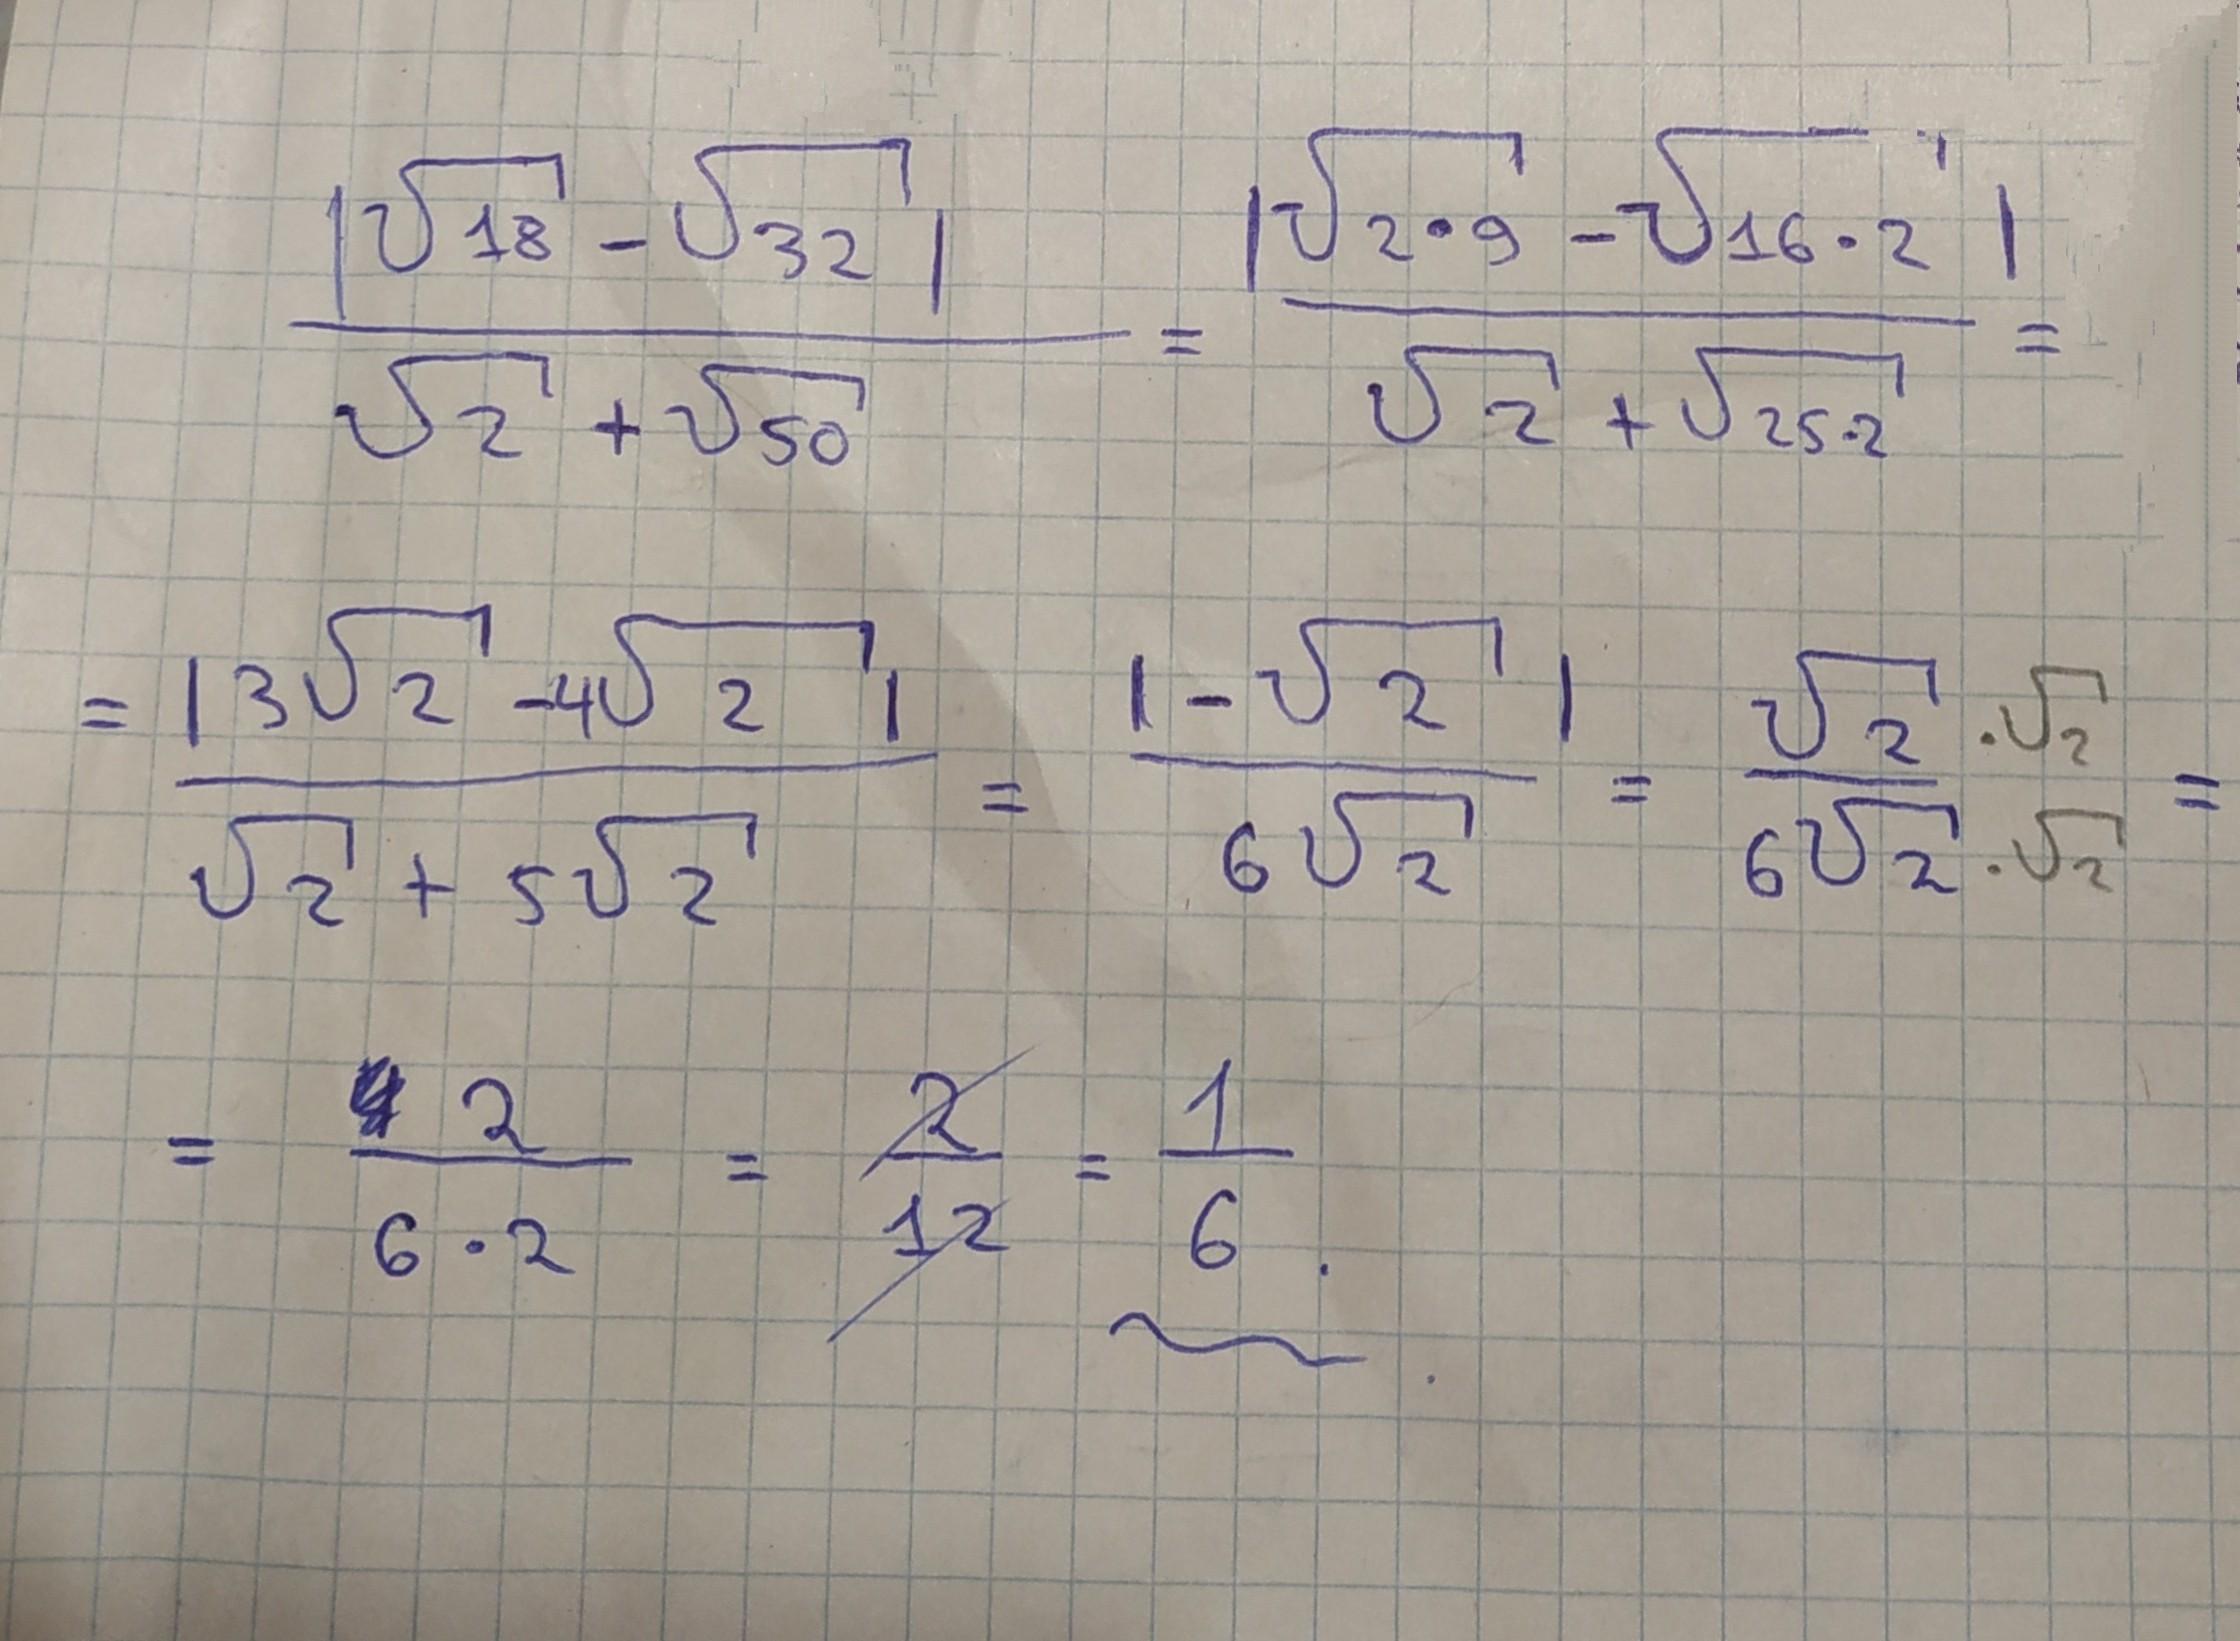 |√18 - √32| / (√2 + √50) = |√2·9 - √16·2| / (√2 + √25·2) =
= |3√2 - 4√2| / (√2 + 5√2) = |-√2| / 6√2 = √2·√2 / 6√2·√2 =
= 2 / 6·2 = 2/12 = 1/6.